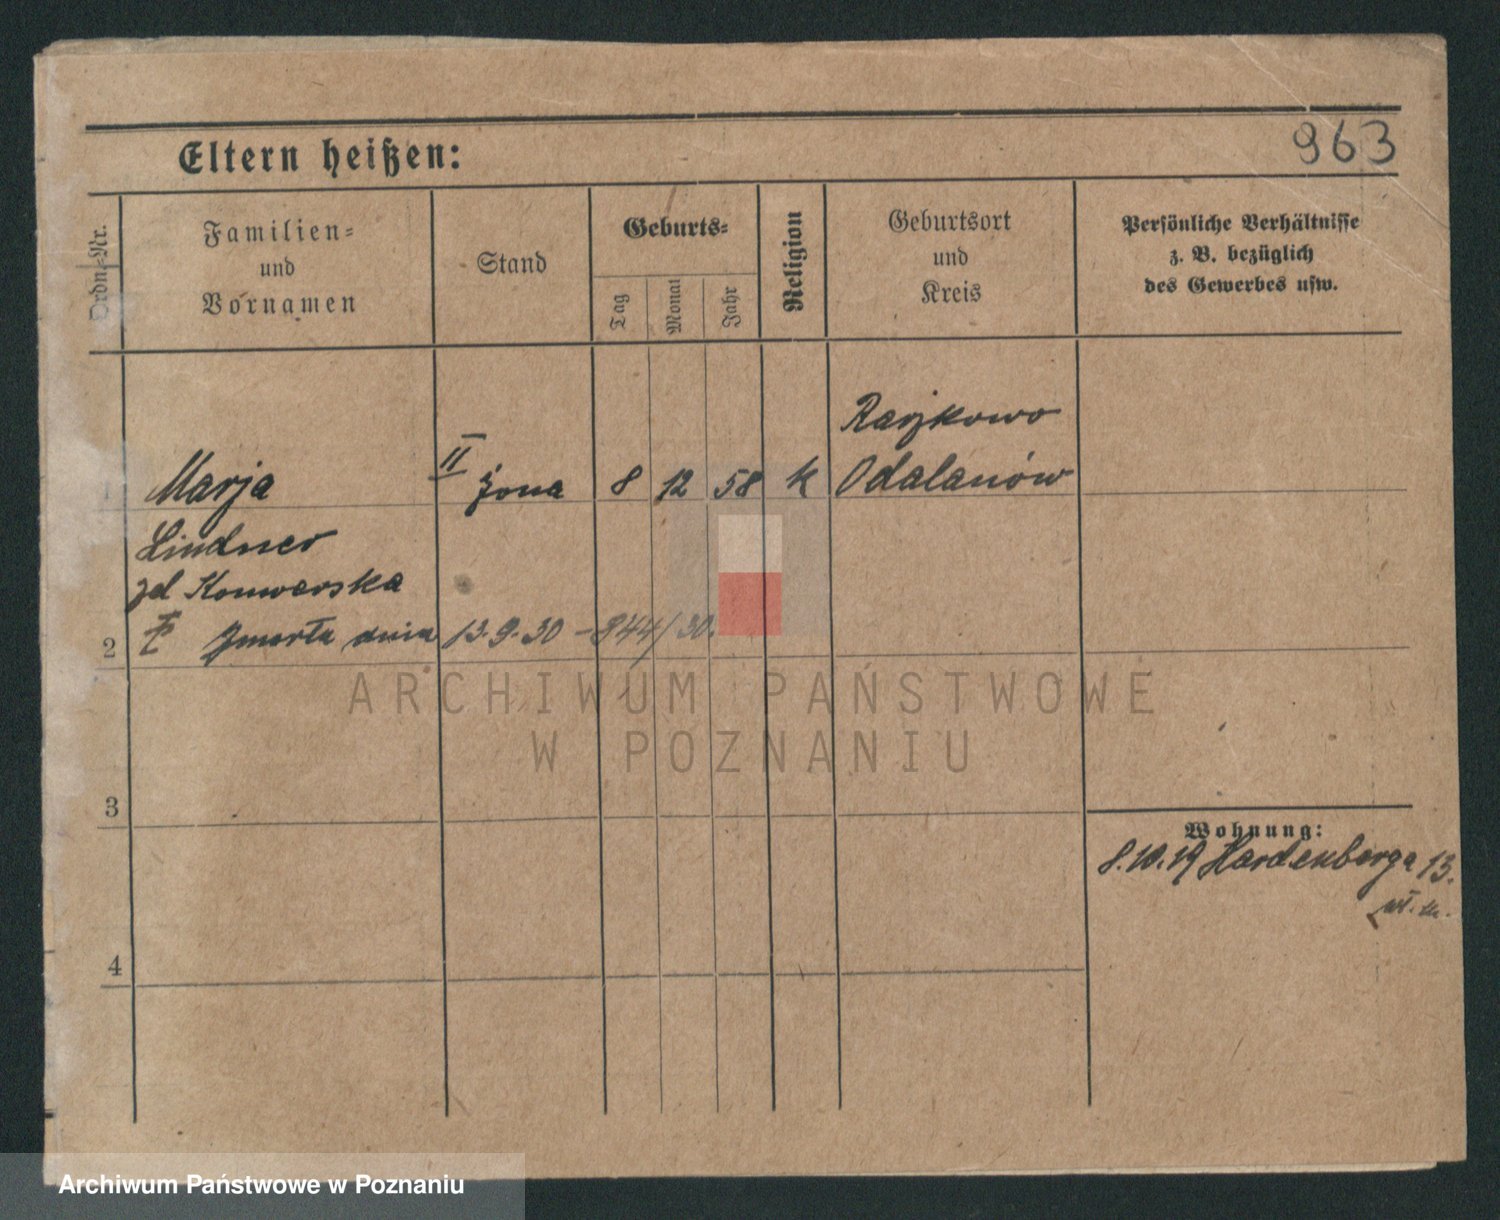 963
Eltern heißen:
Ordn.-Nr.
Familien-
und
Vornamen
Stand
Geburts-
Tag
Monat
Jahr
Religion
Geburtsort
und
Kreis
Persönliche Verhältnisse
z. B. bezüglich
des Gewerbes usw.
Raszkowo
Marja II żona 8 12 58 k Odalanów
Lindner
zd Konwerska
2 Zmarła dnia 13.9.30 - 844/30.
ARCHIWUM PAŃSTWOWE
W POZNANIU
3
Wohnung:
8.10.19 Hardenberga 13.
wł. m.
4
Archiwum Państwowe w Poznaniu